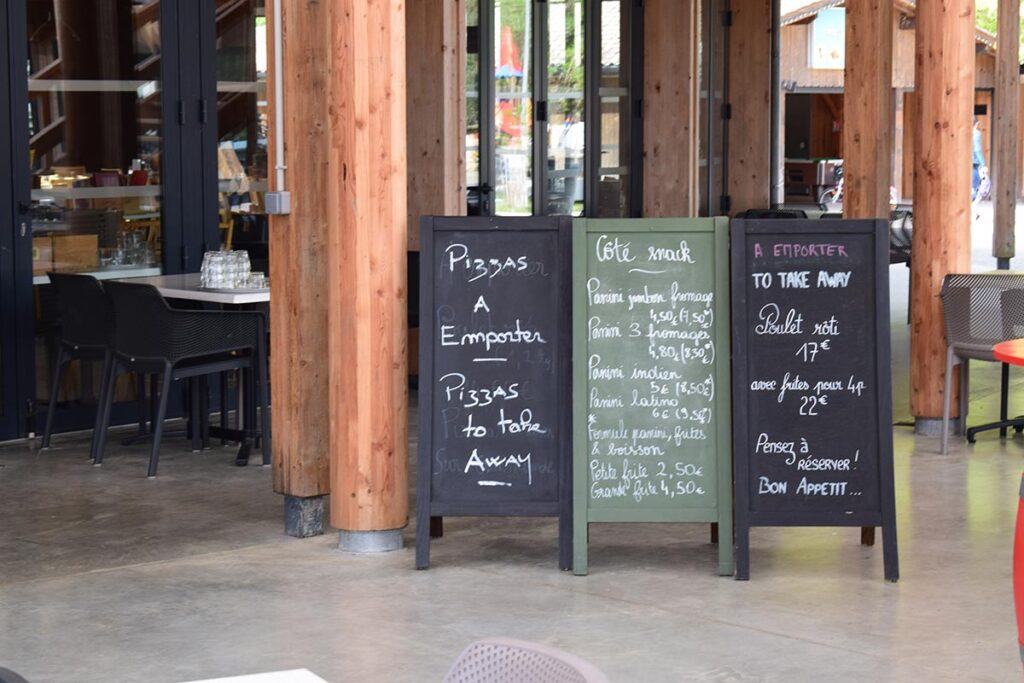 Pizzas
A
Emporter
Pizzas
to take
Away
Côté snack
Panini jambon fromage
4,50€ (7,50*)
Panini 3 fromages
4,80€ (8,30*)
Panini indien
5€ (8,50*)
Panini latino
6€ (9,50*)
*
Formule panini, frites
& boisson
Petite frite 2,50€
Grande frite 4,50€
A EMPORTER
TO TAKE AWAY
Poulet rôti
17€
avec frites pour 4p
22€
Pensez à
RÉSERVER!
BON APPETIT...